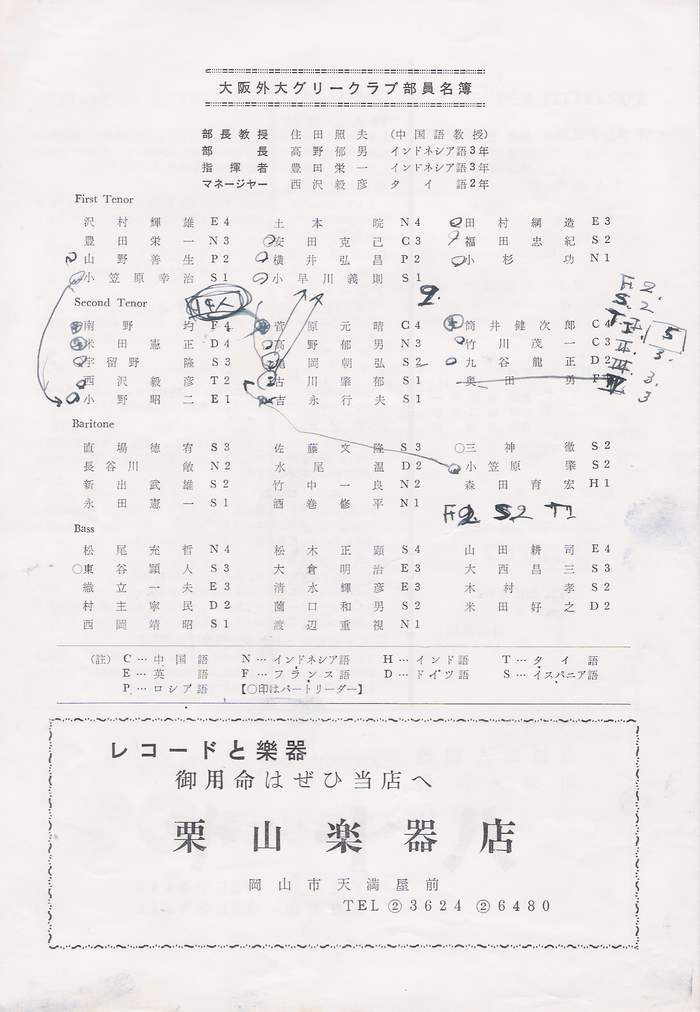 大阪外大グリークラブ部員名簿
部長教授 住田照夫 (中国語教授)
部長 高野郁男 インドネシア語3年
指揮者 豊田栄一 インドネシア語3年
マネージャー 西沢毅彦 タイ語2年
First Tenor
沢村輝雄 E4 土本 院 N4 田村綱造 E3
豊田栄一 N3 安田克己 C3 福田忠紀 S2
山野善生 P2 横井弘昌 P2 小杉 功 N1
小笠原幸治 S1 小早川義則 S1
14人 2.
Second Tenor
南野 均 F4 菅原元晴 C4 筒井健次郎 C4
米田憲正 D4 高野郁男 N3 竹川茂一 C3
宇留野 隆 S3 亀岡朝弘 S2 九谷龍正 D2
西沢毅彦 T2 古川肇郁 S1 奥田 勇 F
小野昭二 E1 吉永行夫 S1
F 2.
S. 2
5
3.
3.
3
Baritone
直場徳宥 S3 佐藤文隆 S3 ○三神 徹 S2
長谷川 敞 N2 水尾 温 D2 小笠原 肇 S2
新出武雄 S2 竹中一良 N2 森田育宏 H1
永田憲一 S1 酒巻修平 N1
F2 S2 T1
Bass
松尾充哲 N4 松木正顕 S4 山田耕司 E4
○東谷穎人 S3 大倉明治 E3 大西昌三 S3
織立一夫 E3 清水輝彦 E3 木村 孝 S2
村主寧民 D2 薗口和男 S2 米田好之 D2
西岡靖昭 S1 渡辺重視 N1
(註) C…中国語 N…インドネシア語 H…インド語 T…タイ語
E…英語 F…フランス語 D…ドイツ語 S…イスパニア語
P…ロシア語 【○印はパートリーダー】
レコードと樂器
御用命はぜひ当店へ
栗山楽器店
岡山市天満屋前
TEL ②3624 ②6480